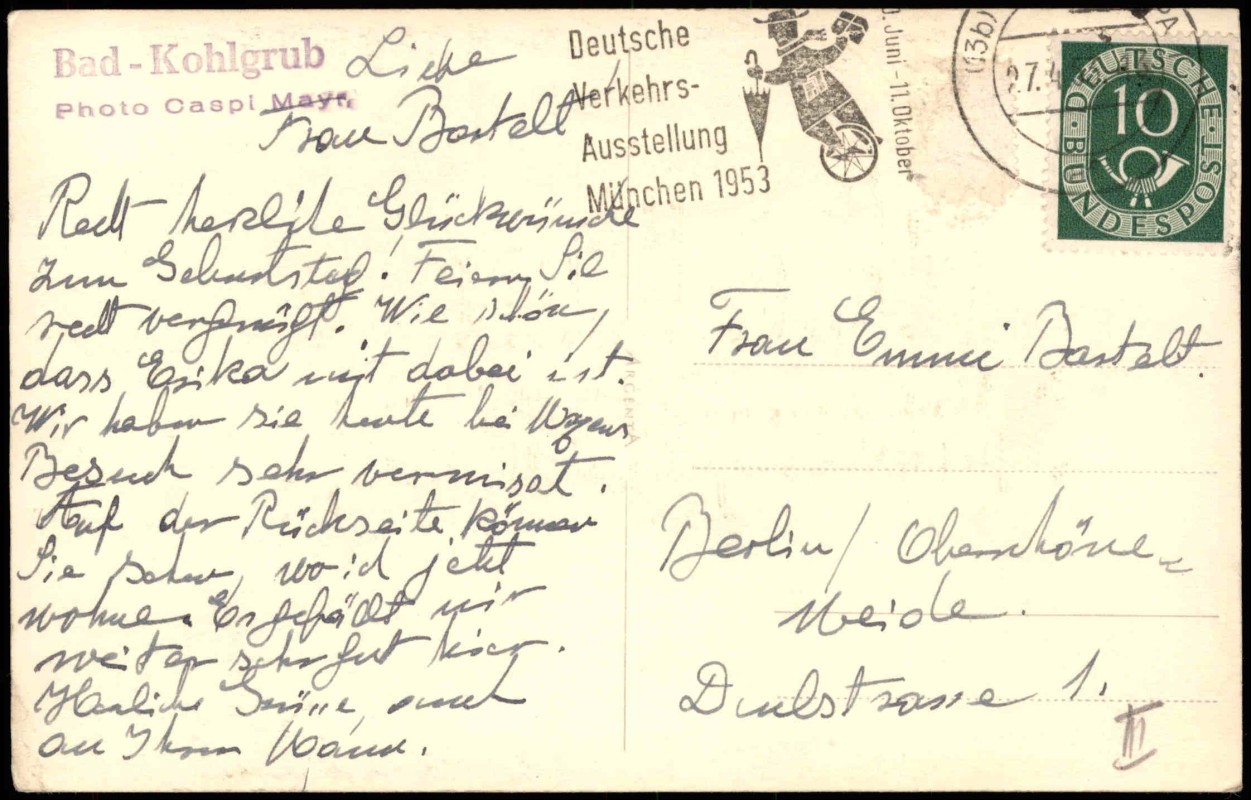 Bad-Kohlgrub
Photo Caspi Mayr,
Liebe
Frau Bastelt
Recht herzliche Glückwünsche
zum Geburtstag! Feiern Sie
recht vergnügt. Wie schön,
dass Erika mit dabei ist.
Wir haben sie heute bei
Besuch sehr vermisst.
Auf der Rückseite können
Sie sehen, wo ich jetzt
wohne. Es gefällt mir
weiter sehr gut hier.
Herzliche Grüsse, auch
an Ihren Mann.
Deutsche
Verkehrs-
Ausstellung
München 1953
. Juni - 11. Oktober
(13b)
PA
27.4
DEUTSCHE
10
BUNDESPOST
Frau Emmi Bastelt.
Berlin / Oberschöne-
weide.
1.
III